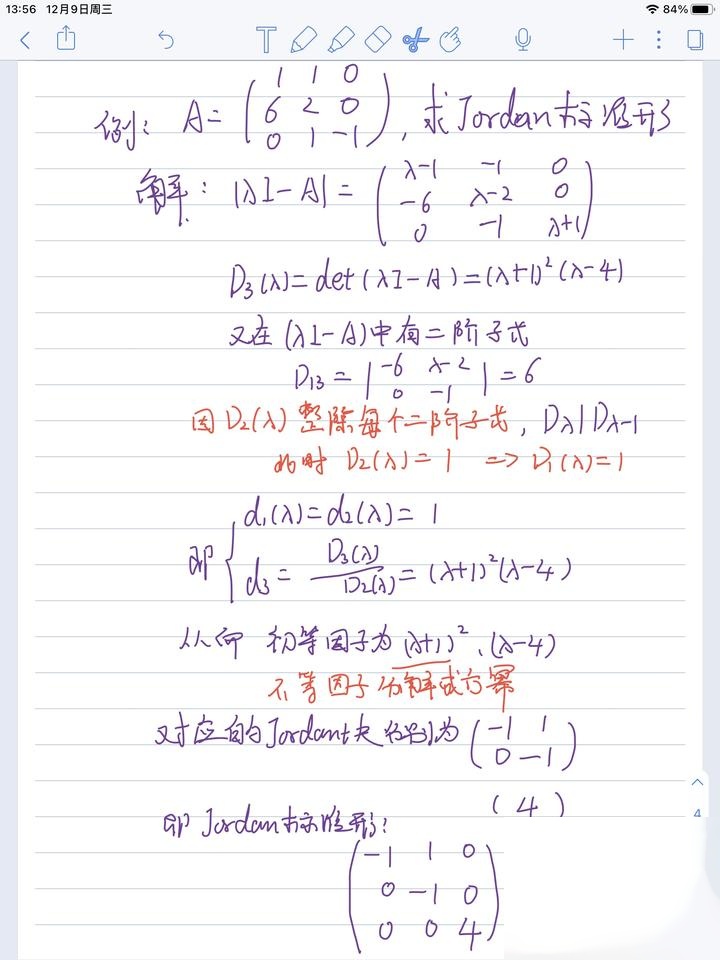 13:56 12月9日周三
84%
例: A = ( 1 1 0
6 2 0
0 1 -1 ), 求Jordan标准形
解: |λI-A| = ( λ-1 -1 0
-6 λ-2 0
0 -1 λ+1 )
D₃(λ) = det(λI-A) = (λ+1)²(λ-4)
又在(λI-A)中有二阶子式
D₁₃ = | -6 λ-2
0 -1 | = 6
因D₂(λ)整除每个二阶子式, Dλ|Dλ-1
此时 D₂(λ) = 1 => D₁(λ) = 1
即 { d₁(λ) = d₂(λ) = 1
d₃ = D₃(λ)/D₂(λ) = (λ+1)²(λ-4)
从而 初等因子为 (λ+1)²、(λ-4)
不等因子分解成方幂
对应的Jordan块分别为 ( -1 1
0 -1 )
( 4 )
4
即Jordan标准形:
( -1 1 0
0 -1 0
0 0 4 )